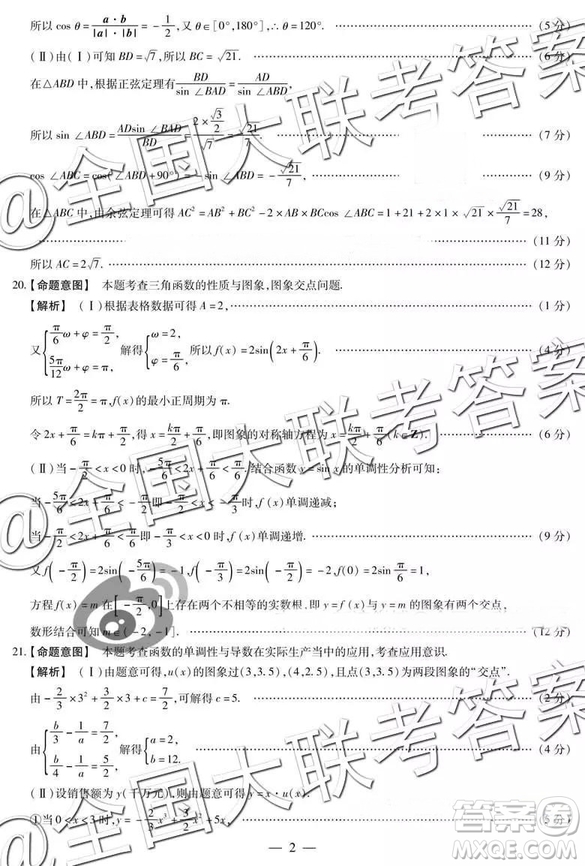 所以 cos θ = a·b/|a|·|b| = -1/2, 又 θ∈[0°,180°], ∴ θ = 120°. (5分)
(Ⅱ)由(Ⅰ)可知 BD = √7, 所以 BC = √21. (6分)
在△ABD 中,根据正弦定理有 BD/sin ∠BAD = AD/sin ∠ABD,
所以 sin ∠ABD = ADsin ∠BAD/BD = 2×√3/2/√7 = √21/7, (7分)
cos ∠ABC = cos(∠ABD + 90°) = -sin ∠ABD = -√21/7, (9分)
在△ABC 中,由余弦定理可得 AC² = AB² + BC² - 2×AB×BCcos ∠ABC = 1 + 21 + 2×1×√21×√21/7 = 28,
(11分)
所以 AC = 2√7. (12分)
20.【命题意图】 本题考查三角函数的性质与图象,图象交点问题.
【解析】 (Ⅰ)根据表格数据可得 A = 2, (1分)
又{π/6 ω + φ = π/2, 5π/12 ω + φ = π, 解得{ω = 2, φ = π/6, 所以 f(x) = 2sin(2x + π/6). (4分)
所以 T = 2π/2 = π, f(x) 的最小正周期为 π.
令 2x + π/6 = kπ + π/2, 得 x = kπ/2 + π/6, 即图象的对称轴方程为 x = kπ/2 + π/6 (k∈Z). (6分)
(Ⅱ)当 -π/2 < x < 0 时, -5π/6 < 2x + π/6 < π/6, 结合函数 y = sin x 的单调性分析可知:
当 -5π/6 < 2x + π/6 < -π/2 即 -π/2 < x < -π/3 时, f(x) 单调递减;
当 -π/2 < 2x + π/6 < π/6 即 -π/3 < x < 0 时, f(x) 单调递增. (9分)
又 f(-π/2) = 2sin(-5π/6) = -1, f(-π/3) = 2sin(-π/2) = -2, f(0) = 2sin π/6 = 1,
方程 f(x) = m 在[-π/2, 0]上存在两个不相等的实数根, 即 y = f(x) 与 y = m 的图象有两个交点,
数形结合可知 m∈(-2, -1]. (12分)
21.【命题意图】 本题考查函数的单调性与导数在实际生产当中的应用,考查应用意识.
【解析】 (Ⅰ)由题意可得, u(x) 的图象过(3,3.5),(4,2.5), 且点(3,3.5)为两段图象的“交点”.
由 -2/3×3² + 3/2×3 + c = 7/2, 可解得 c = 5. (2分)
由{b/3 - 1/a = 7/2, b/4 - 1/a = 5/2, 解得{a = 2, b = 12. (4分)
(Ⅱ)设销售额为 y(千万元), 则由题意可得 y = x·u(x).
①当 0 < x < 3 时, y = -2/3 x³ + 3/2 x² + 5x, (5分)
— 2 —
@全国大联考答案
@全国大联考答案
@全国大联考答案
作业帮答案
MXQE.COM